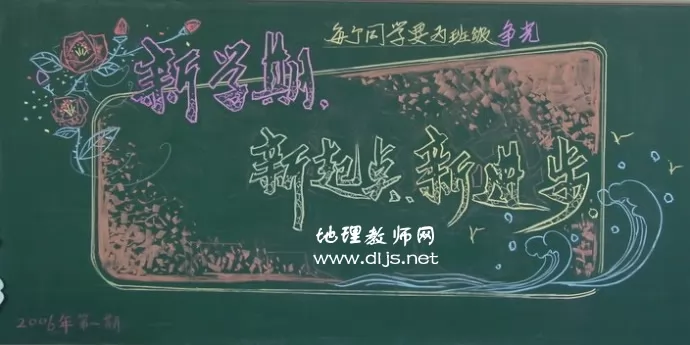 每个同学要为班级争光
新学期、
新起点、新进步
地理教师网
www.dljs.net
2006年第一期